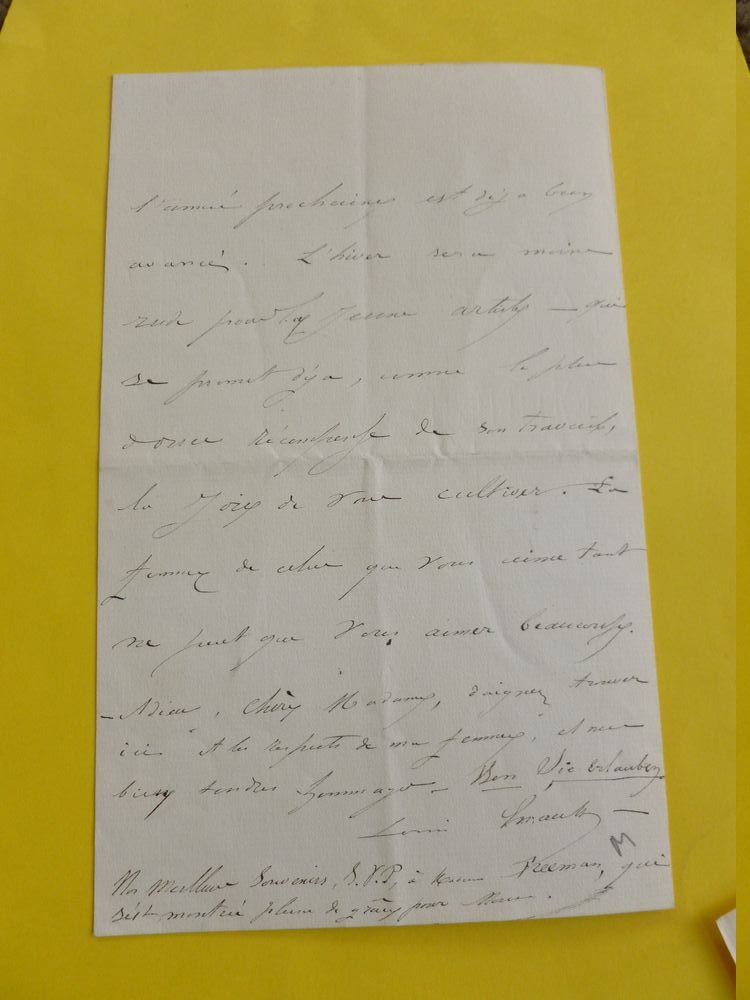 l'année prochaine est déja bien
avancé. L'hiver sera moins
rude pour la Jeune artiste — qui
se promet déja, comme la plus
douce récompense de son travail,
la Joie de vous cultiver. La
femme de celui que vous aime tant
ne peut que vous aimer beaucoup.
– Adieu, chère Madame, daignez trouver
ici les respects de ma femme, et mes
bien tendres hommages –
Louis Enault —
Nos meilleurs souvenirs, S.V.P, à Freeman, qui
s'est montré pleine de grâce pour nous.
M